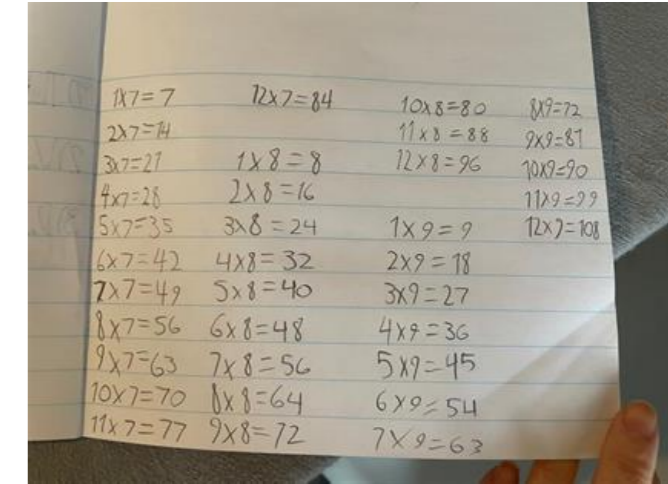 1x7=7
2x7=14
3x7=21
4x7=28
5x7=35
6x7=42
7x7=49
8x7=56
9x7=63
10x7=70
11x7=77
12x7=84
1x8=8
2x8=16
3x8=24
4x8=32
5x8=40
6x8=48
7x8=56
8x8=64
9x8=72
10x8=80
11x8=88
12x8=96
1x9=9
2x9=18
3x9=27
4x9=36
5x9=45
6x9=54
7x9=63
8x9=72
9x9=81
10x9=90
11x9=99
12x9=108